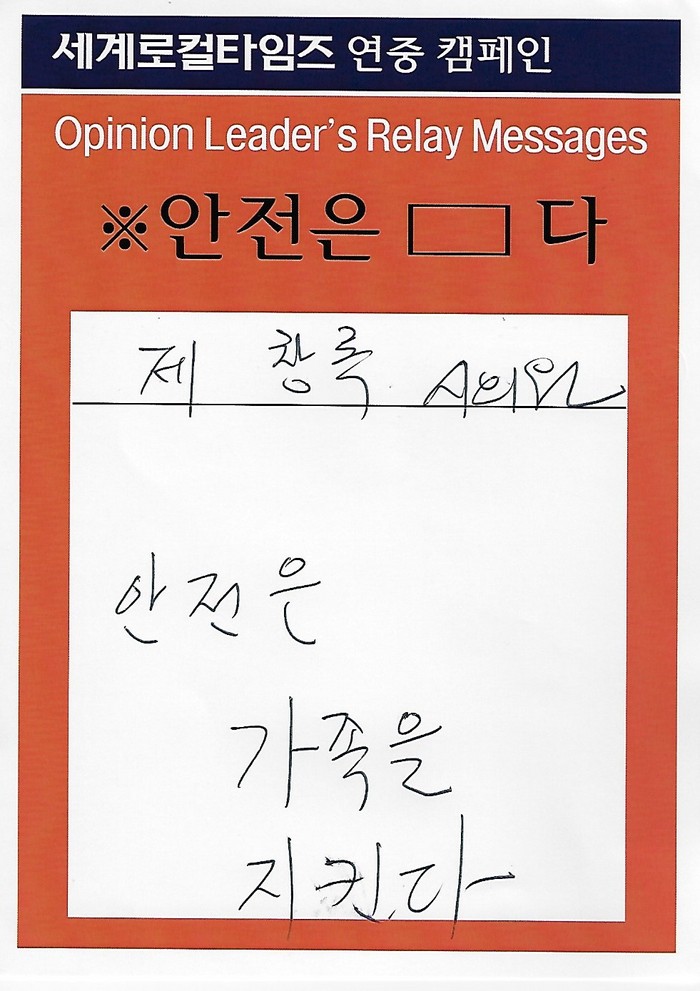 세계로컬타임즈 연중 캠페인
Opinion Leader's Relay Messages
※안전은 ▭ 다
제 창록 시의원
안전은
가족을
지킨다